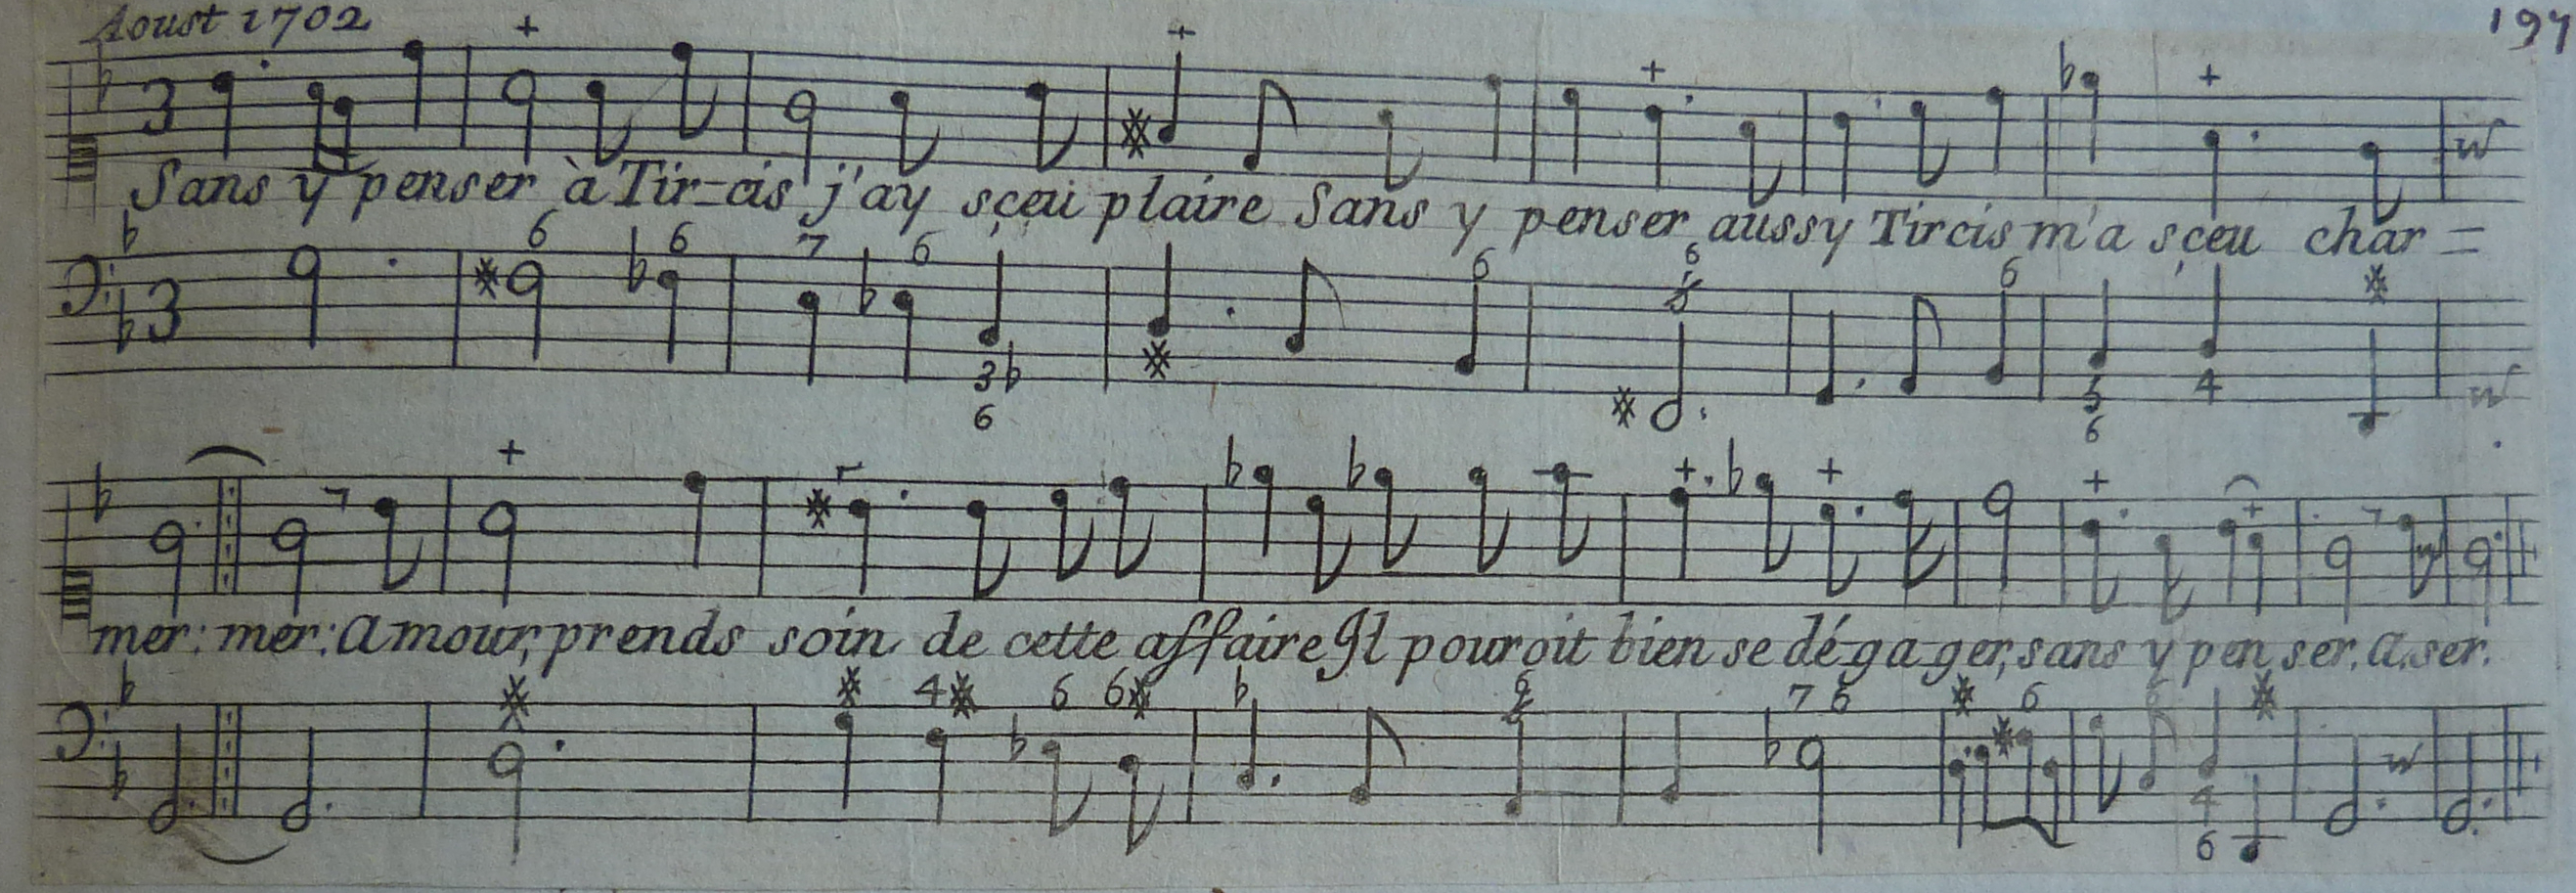 Aoust 1702 197
Sans y penser à Tir-cis j'ay sçeu plaire Sans y penser aussy Tircis m'a sçeu char =
mer: mer: Amour, prends soin de cette affaire Il pouroit bien se dé-ga-ger, sans y pen ser. A. ser.